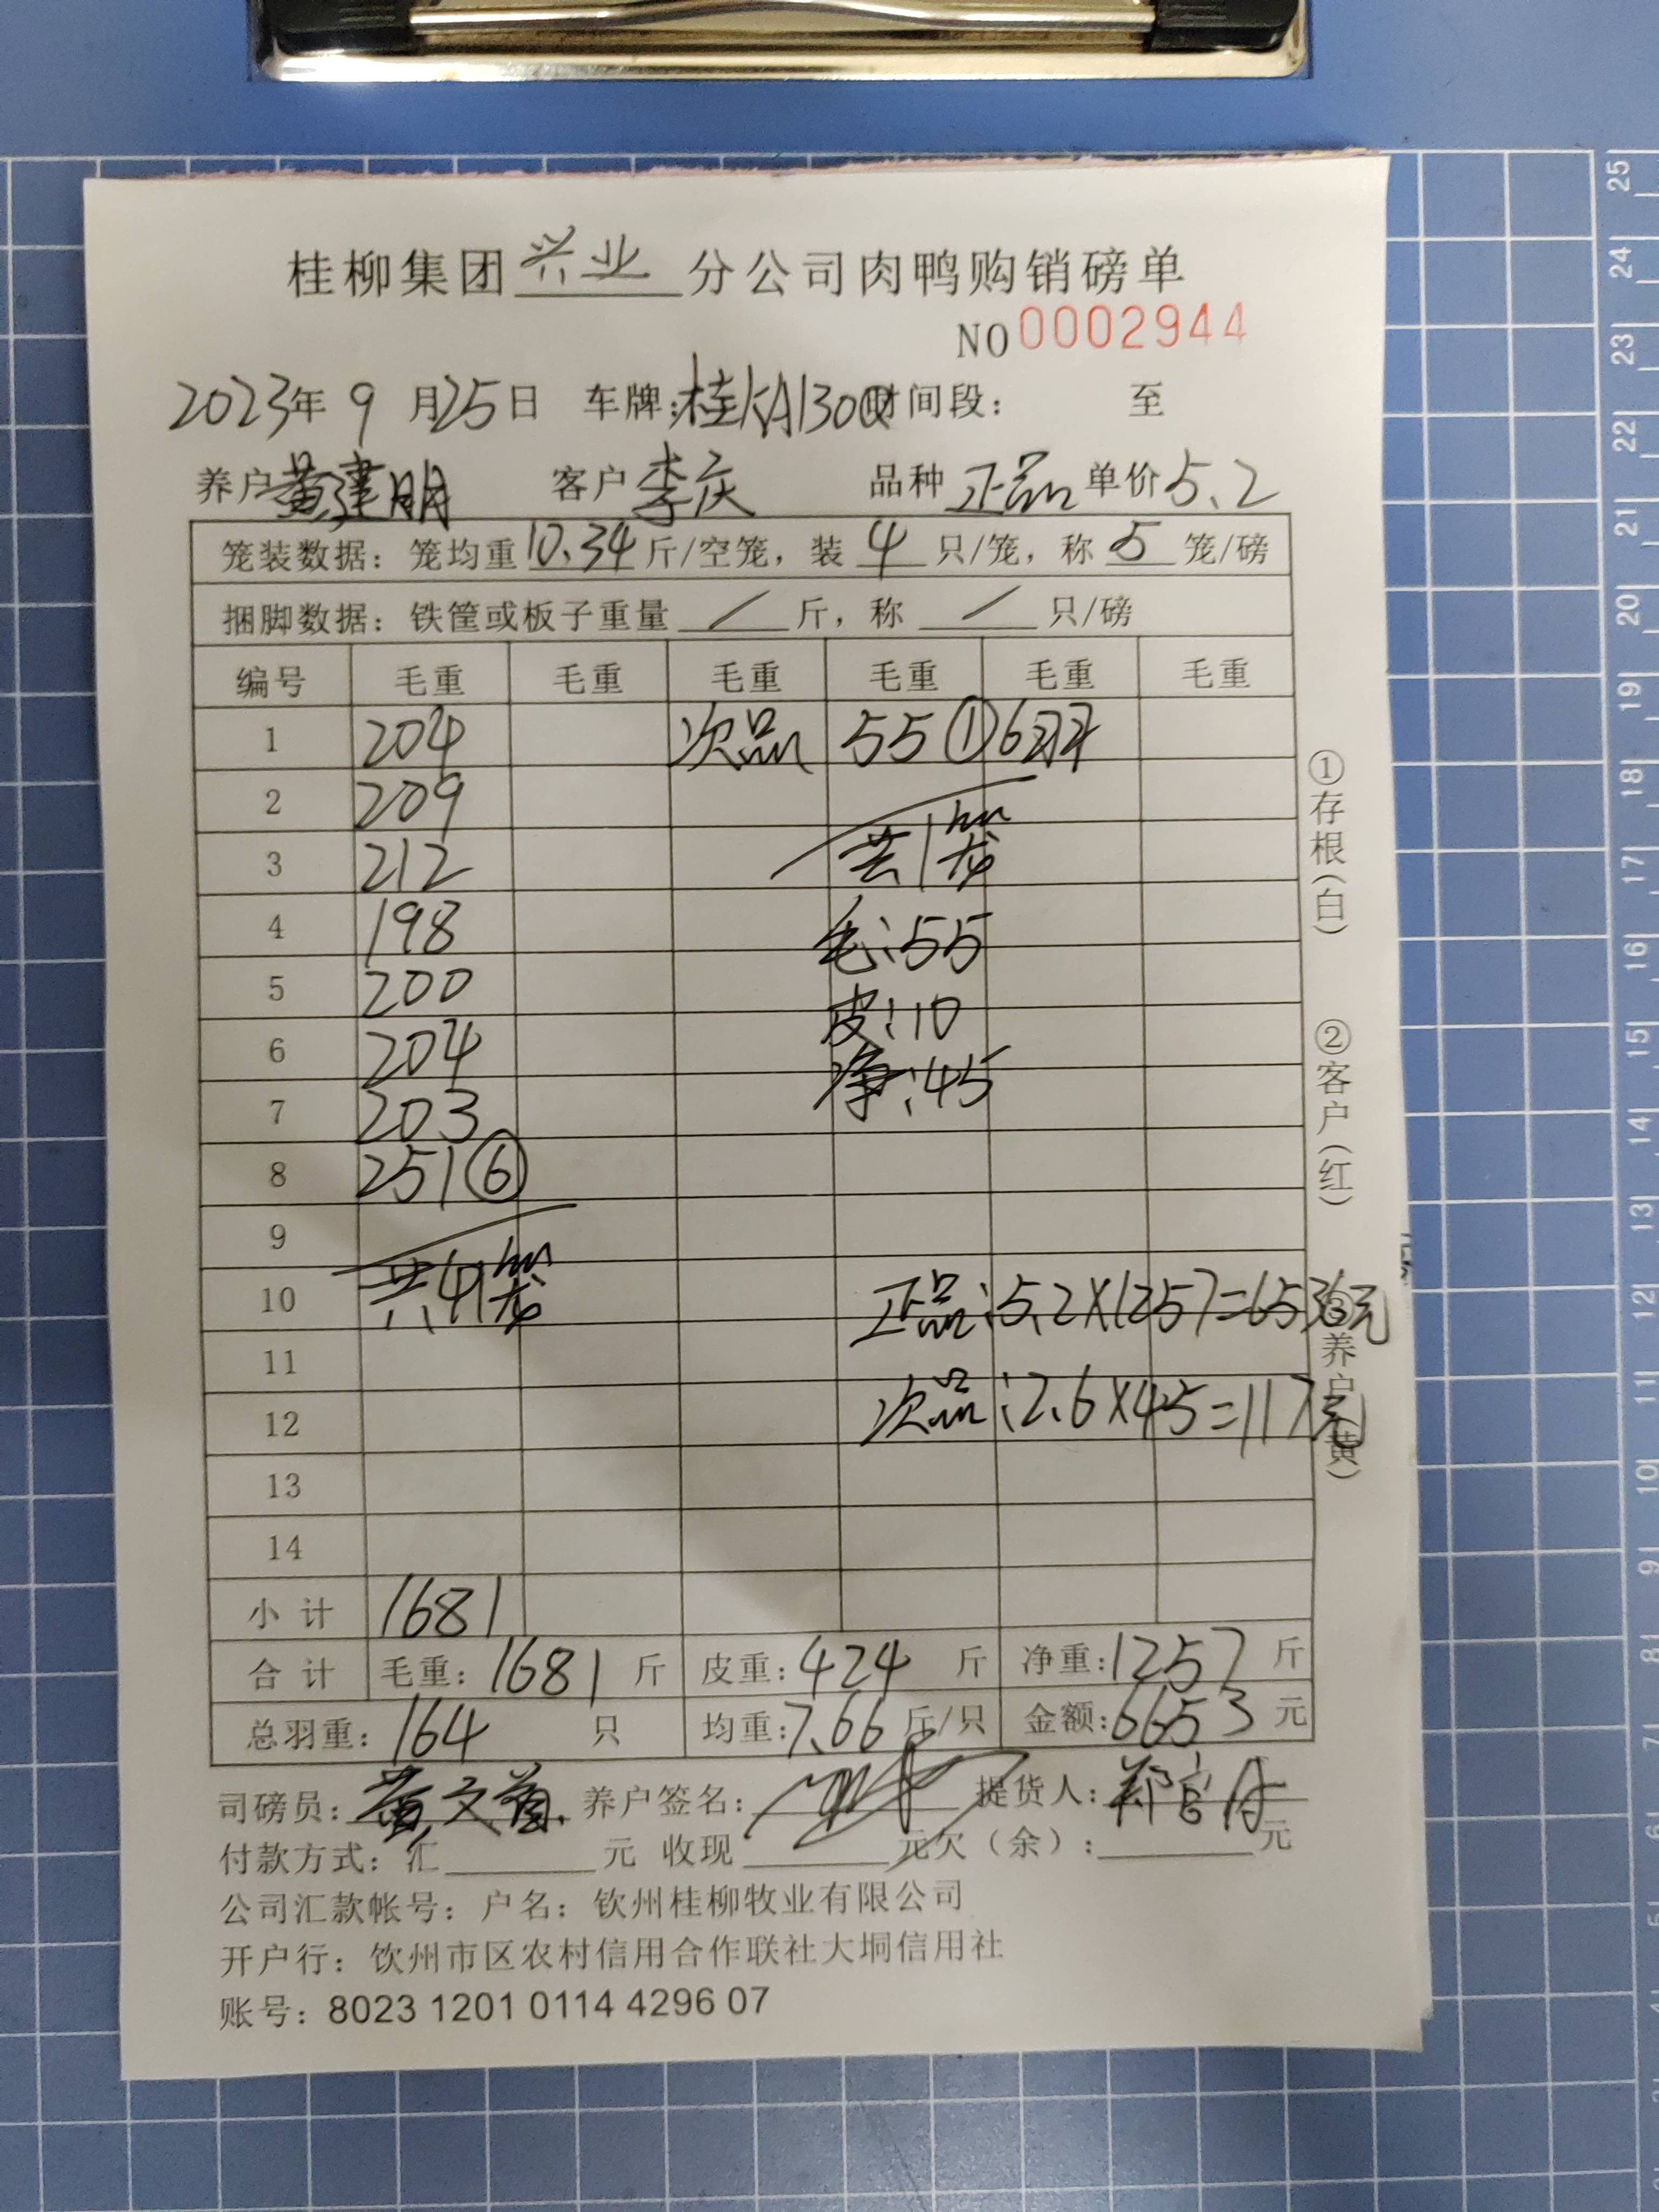 桂柳集团 兴业 分公司肉鸭购销磅单
NO 0002944
2023年 9 月25日 车牌:桂KA1300 时间段: 至
养户 黄建明 客户 李庆 品种 正品 单价 5.2
笼装数据: 笼均重 10.34 斤/空笼, 装 4 只/笼, 称 5 笼/磅
捆脚数据: 铁筐或板子重量 / 斤, 称 / 只/磅
编号 毛重 毛重 毛重 毛重 毛重 毛重
1 204 次品 55 ① 6羽
2 209
3 212 共1笼
4 198 毛:55
5 200 皮:10
6 204 净:45
7 203
8 251⑥
9
10 共41笼 正品:5.2×1257=6536元
11
12 次品:2.6×45=117元
13
14
小 计 1681
合 计 毛重: 1681 斤 皮重: 424 斤 净重: 1257 斤
总羽重: 164 只 均重: 7.66 斤/只 金额: 6653 元
司磅员: 黄文首 养户签名: 提货人: 郑官
付款方式: 汇 元 收现 元欠(余): 元
公司汇款帐号: 户名: 钦州桂柳牧业有限公司
开户行: 钦州市区农村信用合作联社大垌信用社
账号: 8023 1201 0114 4296 07
①存根(白) ②客户(红) ③养户(黄)
25
24
23
22
21
20
19
18
17
16
15
14
13
12
11
10
9
8
7
6
5